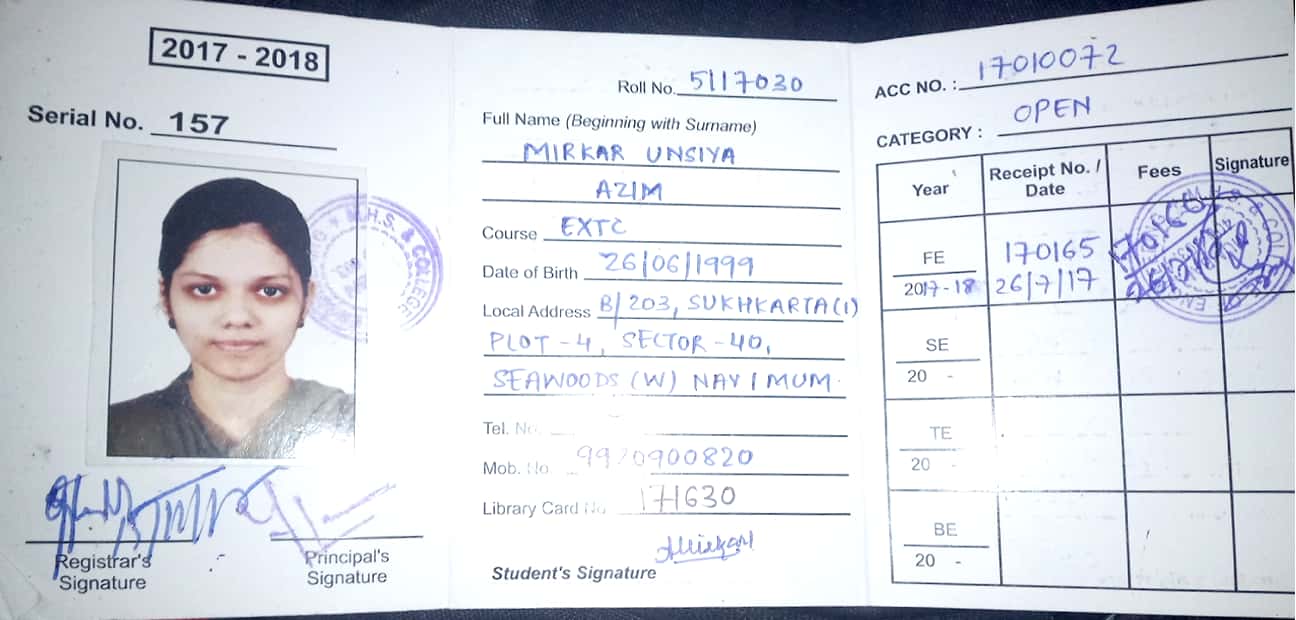 2017 - 2018
Serial No. 157
H.S. & COLLEGE
Registrar's
Signature
Principal's
Signature
Roll No. 5117030
Full Name (Beginning with Surname)
MIRKAR UNSIYA
AZIM
Course EXTC
Date of Birth 26/06/1999
Local Address B/203, SUKHKARTA(1)
PLOT-4, SECTOR-40,
SEAWOODS (W) NAVI MUM.
Tel. No.
Mob. No 9920900820
Library Card No 171630
Student's Signature
ACC NO. : 17010072
CATEGORY : OPEN
Year Receipt No. / Date Fees Signature
FE 170165
2017-18 26/7/17
SE
20 -
TE
20 -
BE
20 -